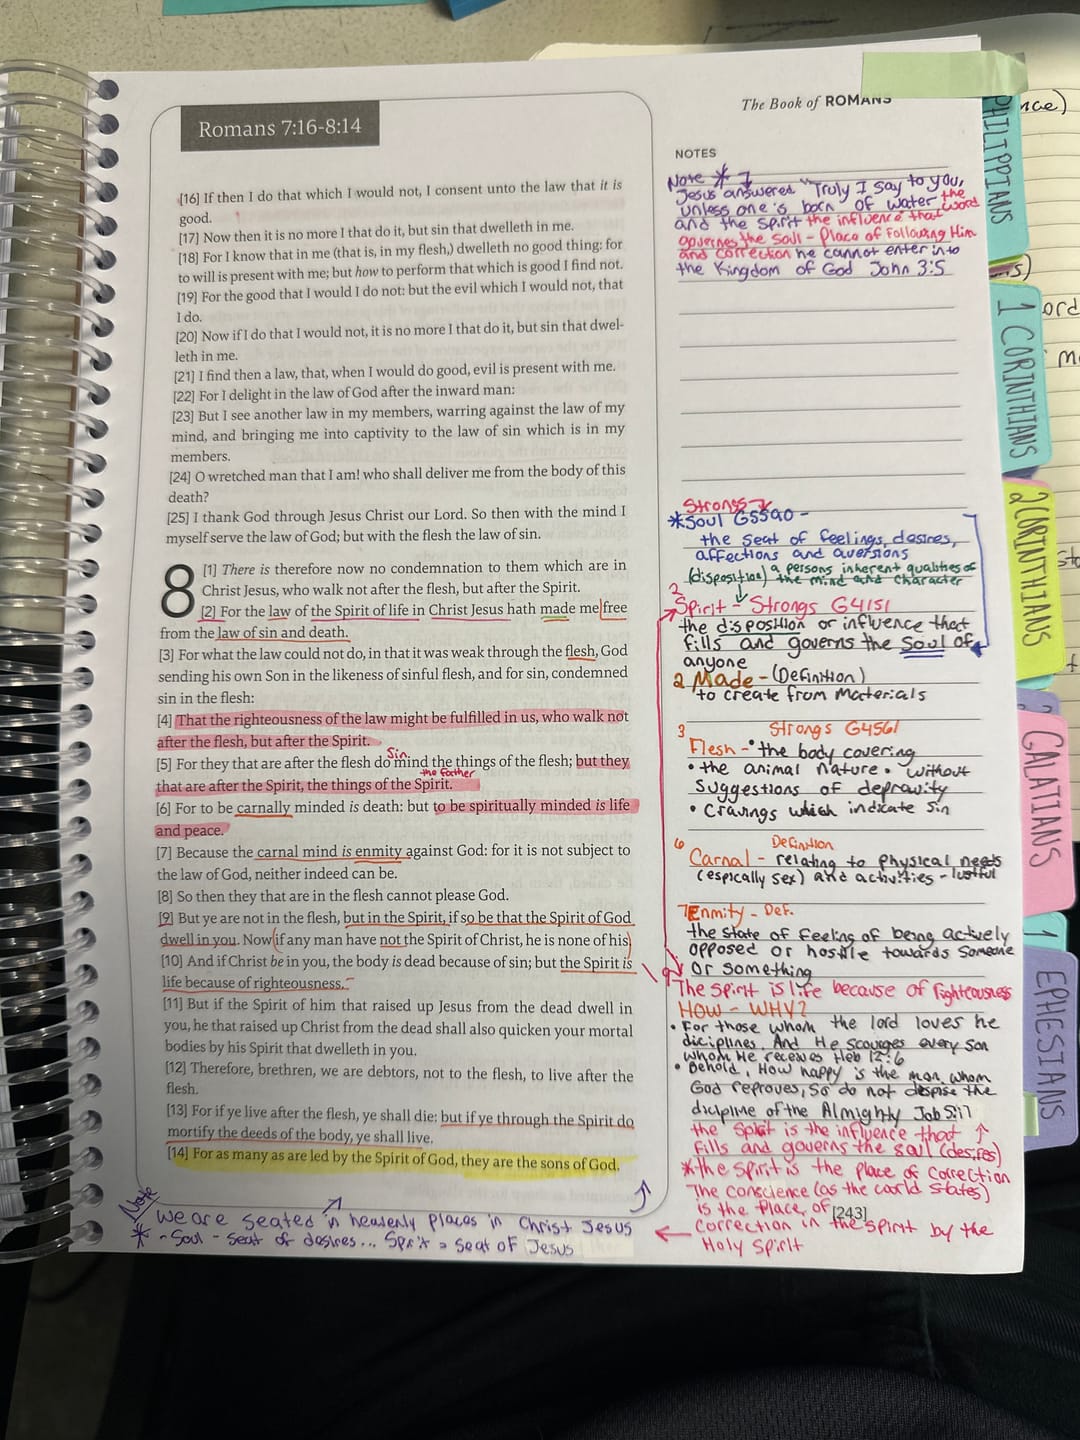 The Book of ROMANS
Romans 7:16-8:14
[16] If then I do that which I would not, I consent unto the law that it is
good.
[17] Now then it is no more I that do it, but sin that dwelleth in me.
[18] For I know that in me (that is, in my flesh,) dwelleth no good thing: for
to will is present with me; but how to perform that which is good I find not.
[19] For the good that I would I do not: but the evil which I would not, that
I do.
[20] Now if I do that I would not, it is no more I that do it, but sin that dwel-
leth in me.
[21] I find then a law, that, when I would do good, evil is present with me.
[22] For I delight in the law of God after the inward man:
[23] But I see another law in my members, warring against the law of my
mind, and bringing me into captivity to the law of sin which is in my
members.
[24] O wretched man that I am! who shall deliver me from the body of this
death?
[25] I thank God through Jesus Christ our Lord. So then with the mind I
myself serve the law of God; but with the flesh the law of sin.
8
[1] There is therefore now no condemnation to them which are in
Christ Jesus, who walk not after the flesh, but after the Spirit.
[2] For the law of the Spirit of life in Christ Jesus hath made me free
from the law of sin and death.
[3] For what the law could not do, in that it was weak through the flesh, God
sending his own Son in the likeness of sinful flesh, and for sin, condemned
sin in the flesh:
[4] That the righteousness of the law might be fulfilled in us, who walk not
after the flesh, but after the Spirit.
Sin
[5] For they that are after the flesh do mind the things of the flesh; but they
the father
that are after the Spirit, the things of the Spirit.
[6] For to be carnally minded is death: but to be spiritually minded is life
and peace.
[7] Because the carnal mind is enmity against God: for it is not subject to
the law of God, neither indeed can be.
[8] So then they that are in the flesh cannot please God.
[9] But ye are not in the flesh, but in the Spirit, if so be that the Spirit of God
dwell in you. Now if any man have not the Spirit of Christ, he is none of his
[10] And if Christ be in you, the body is dead because of sin; but the Spirit is
life because of righteousness.
[11] But if the Spirit of him that raised up Jesus from the dead dwell in
you, he that raised up Christ from the dead shall also quicken your mortal
bodies by his Spirit that dwelleth in you.
[12] Therefore, brethren, we are debtors, not to the flesh, to live after the
flesh.
[13] For if ye live after the flesh, ye shall die: but if ye through the Spirit do
mortify the deeds of the body, ye shall live.
[14] For as many as are led by the Spirit of God, they are the sons of God.
Note
we are seated in heavenly places in Christ Jesus
* - Soul - seat of desires... Sprit = seat of Jesus
NOTES
Note * 7
Jesus answered "Truly I say to you,
unless one is born of water the word
and the spirit the influence that
governes the soul - Place of Following Him
and correction he cannot enter into
the Kingdom of God John 3:5
Strongs
*Soul G5590 -
the seat of feelings, desires,
affections and aversions
(disposition) a persons inherent qualities of
the mind and character
2
Spirit - Strongs G4151
the disposition or influence that
fills and governs the Soul of
anyone
2 Made - (Definition)
to create from materials
3 Strongs G4561
Flesh - • the body covering
• the animal nature • without
suggestions of depravity
• Cravings which indicate sin
6 Definition
Carnal - relating to physical needs
(espically sex) and activities - lustful
7 Enmity - Def.
the state of feeling of being actively
opposed or hostile towards someone
or something
The spirit is life because of righteousness
HOW - WHY?
• For those whom the lord loves he
diciplines. And He scourges every son
whom He receives Heb 12:6
• Behold, How happy is the man whom
God reproves, So do not despise the
dicipline of the Almighty Job 5:17
the Spirit is the influence that ↑
fills and governs the soul (desires)
*the spirit is the place of correction
The conscience (as the world states)
is the place of
[243]
← correction in the spirit by the
Holy Spirit
PHILIPPIANS
1 CORINTHIANS
2 CORINTHIANS
GALATIANS
1
EPHESIANS
ord